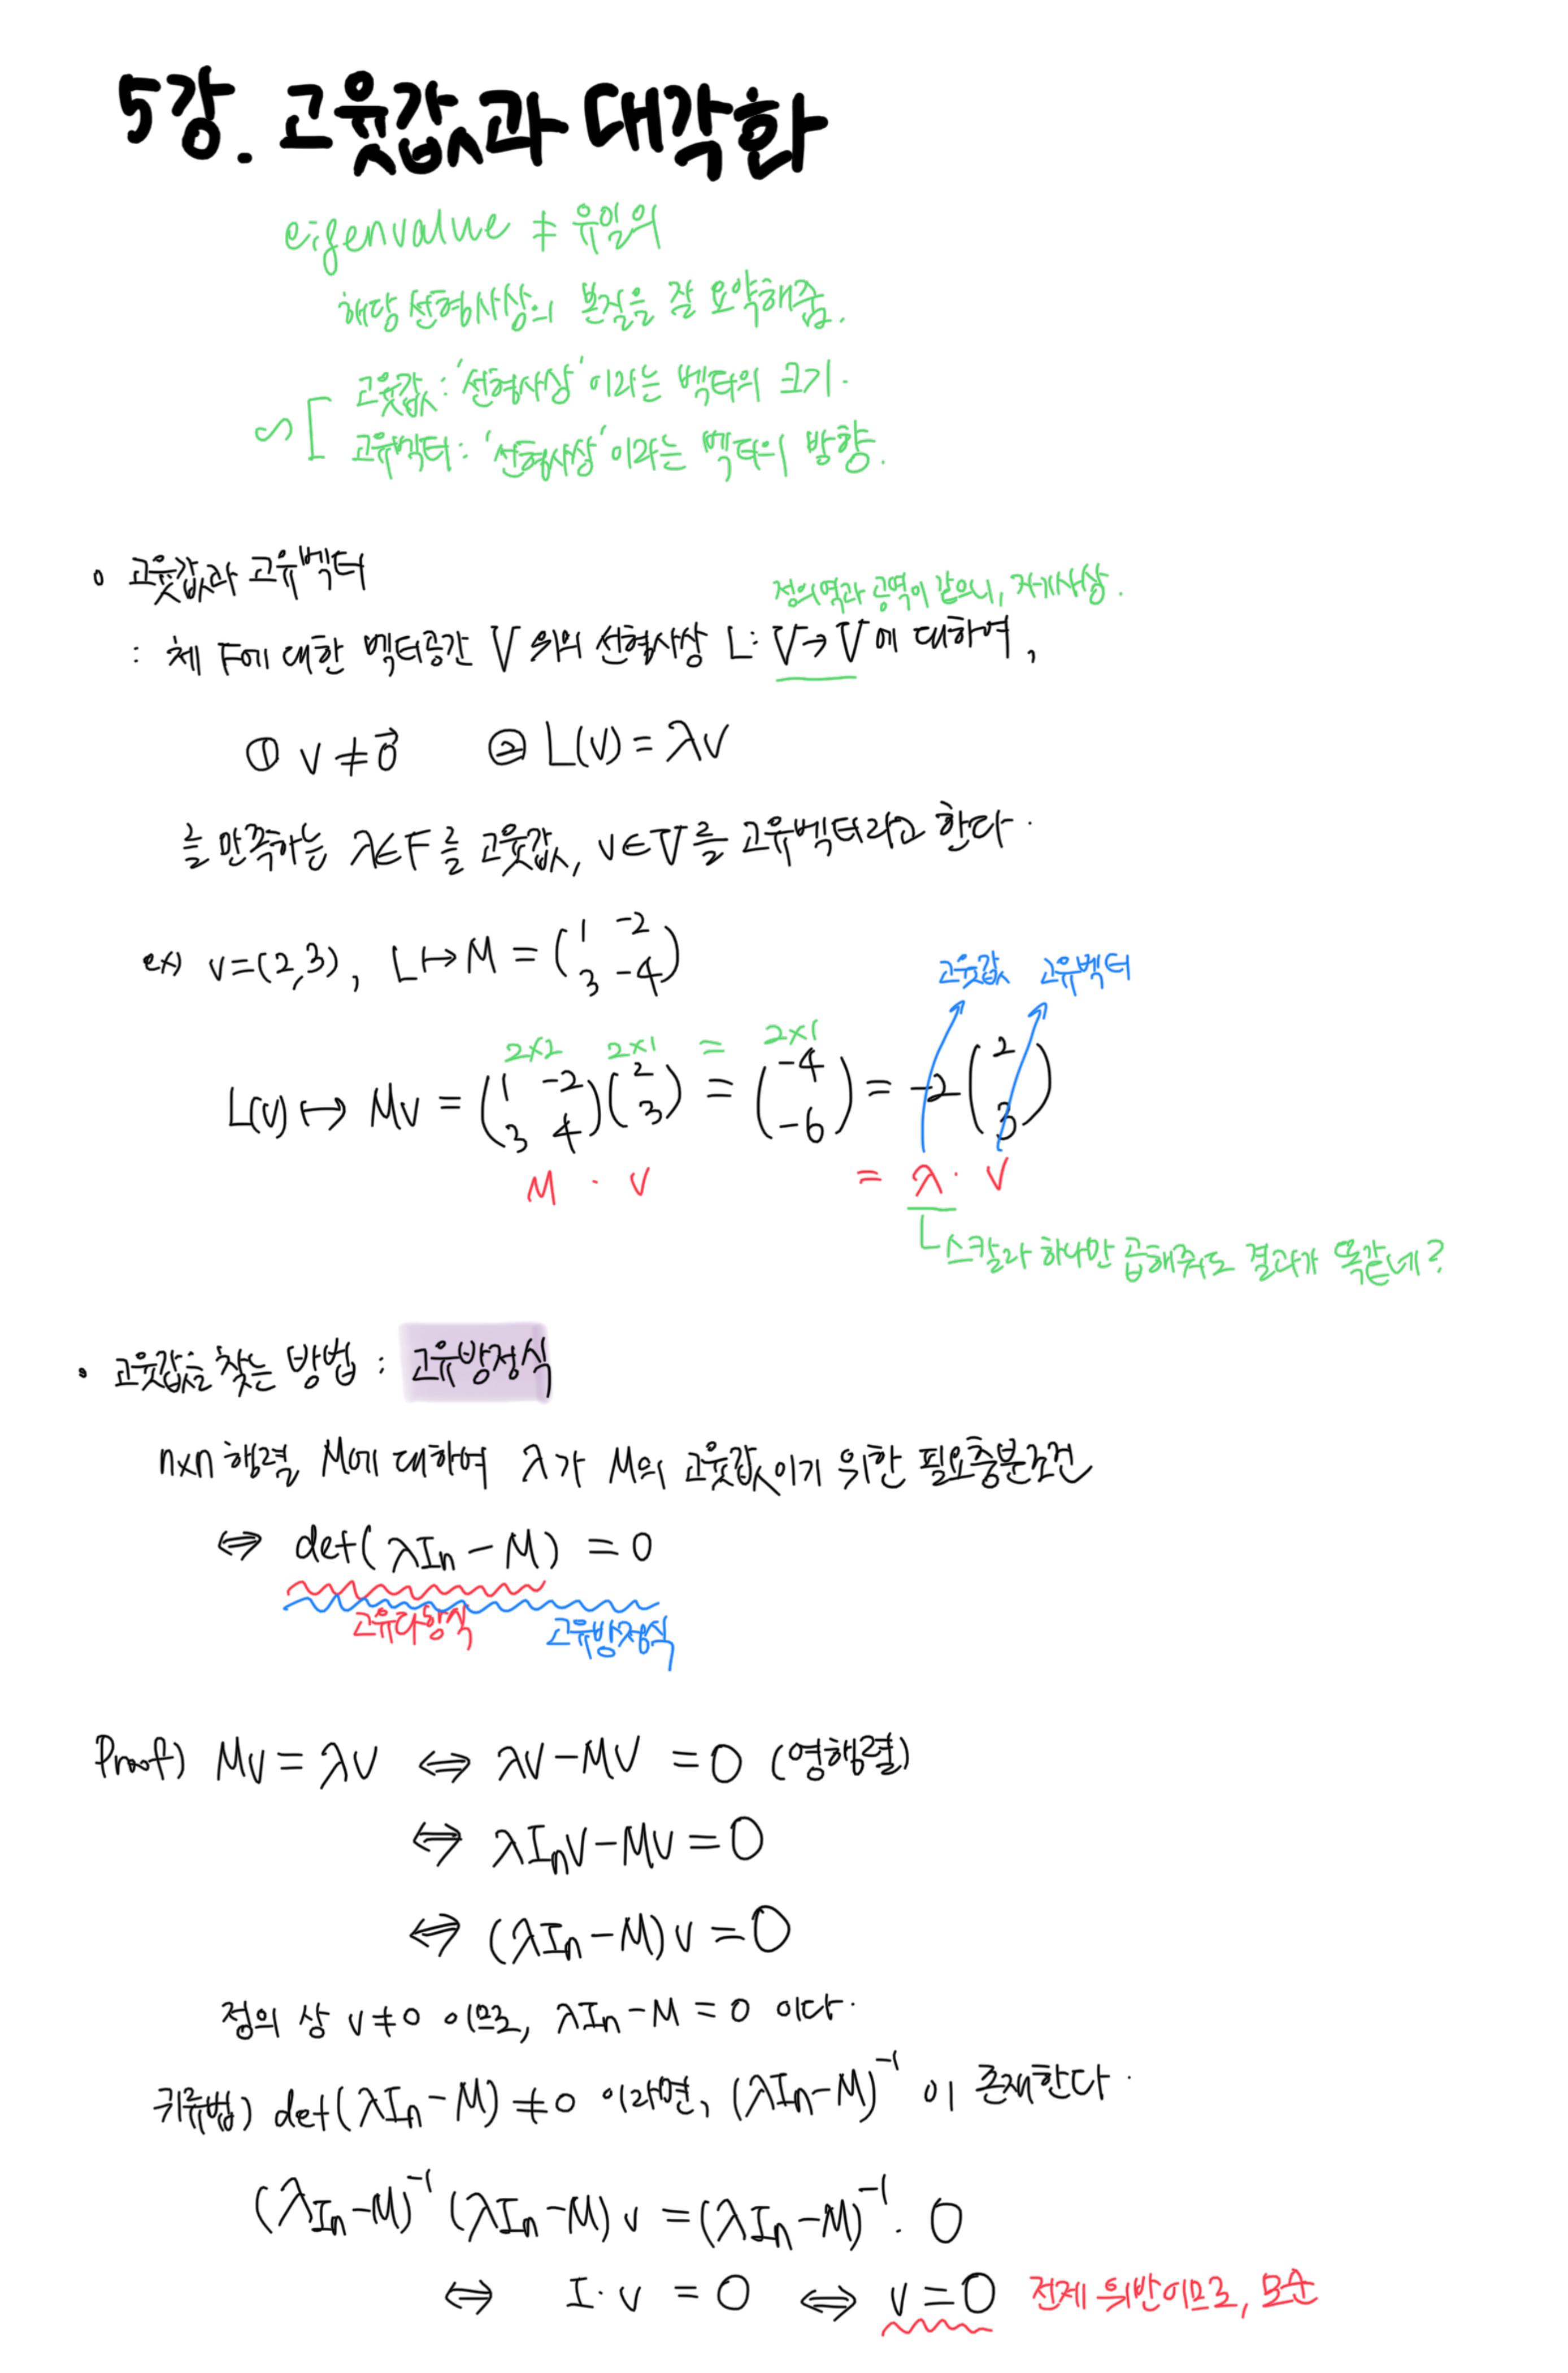 5강. 고윳값과 대각화
eigenvalue ≠ 유일의
해당 선형사상의 본질을 잘 요약해줌.
∽[ 고윳값 : '선형사상'이라는 벡터의 크기.
고유벡터 : '선형사상'이라는 벡터의 방향.
o 고윳값과 고유벡터
정의역과 공역이 같으니, 자기사상.
: 체 F에 대한 벡터공간 V 위의 선형사상 L: V→V에 대하여,
① v ≠ 0⃗ ② L(v) = λv
를 만족하는 λ∈F를 고윳값, v∈V를 고유벡터라고 한다.
ex) v=(2,3), L↦M = (1 -2
3 -4)
고윳값 고유벡터
2×2 2×1 = 2×1
L(v) ↦ Mv = (1 -2 )(2 ) = (-4 ) = -2(2
3 4) 3) -6) 3)
M · v = λ · v
스칼라 하나만 곱해줘도 결과가 똑같네?
• 고윳값을 찾는 방법 : 고유방정식
n×n 행렬 M에 대하여 λ가 M의 고윳값이기 위한 필요충분조건
⇔ det(λIn − M) = 0
고유다항식 고유방정식
Proof) Mv = λv ⇔ λv − Mv = O (영행렬)
⇔ λInv − Mv = O
⇔ (λIn − M)v = O
정의 상 v≠0 이므로, λIn − M = 0 이다.
귀류법) det(λIn − M) ≠ 0 이라면, (λIn−M)⁻¹ 이 존재한다.
(λIn−M)⁻¹ (λIn−M) v = (λIn−M)⁻¹ · O
⇔ I · v = O ⇔ v = O 전제 위반이므로, 모순